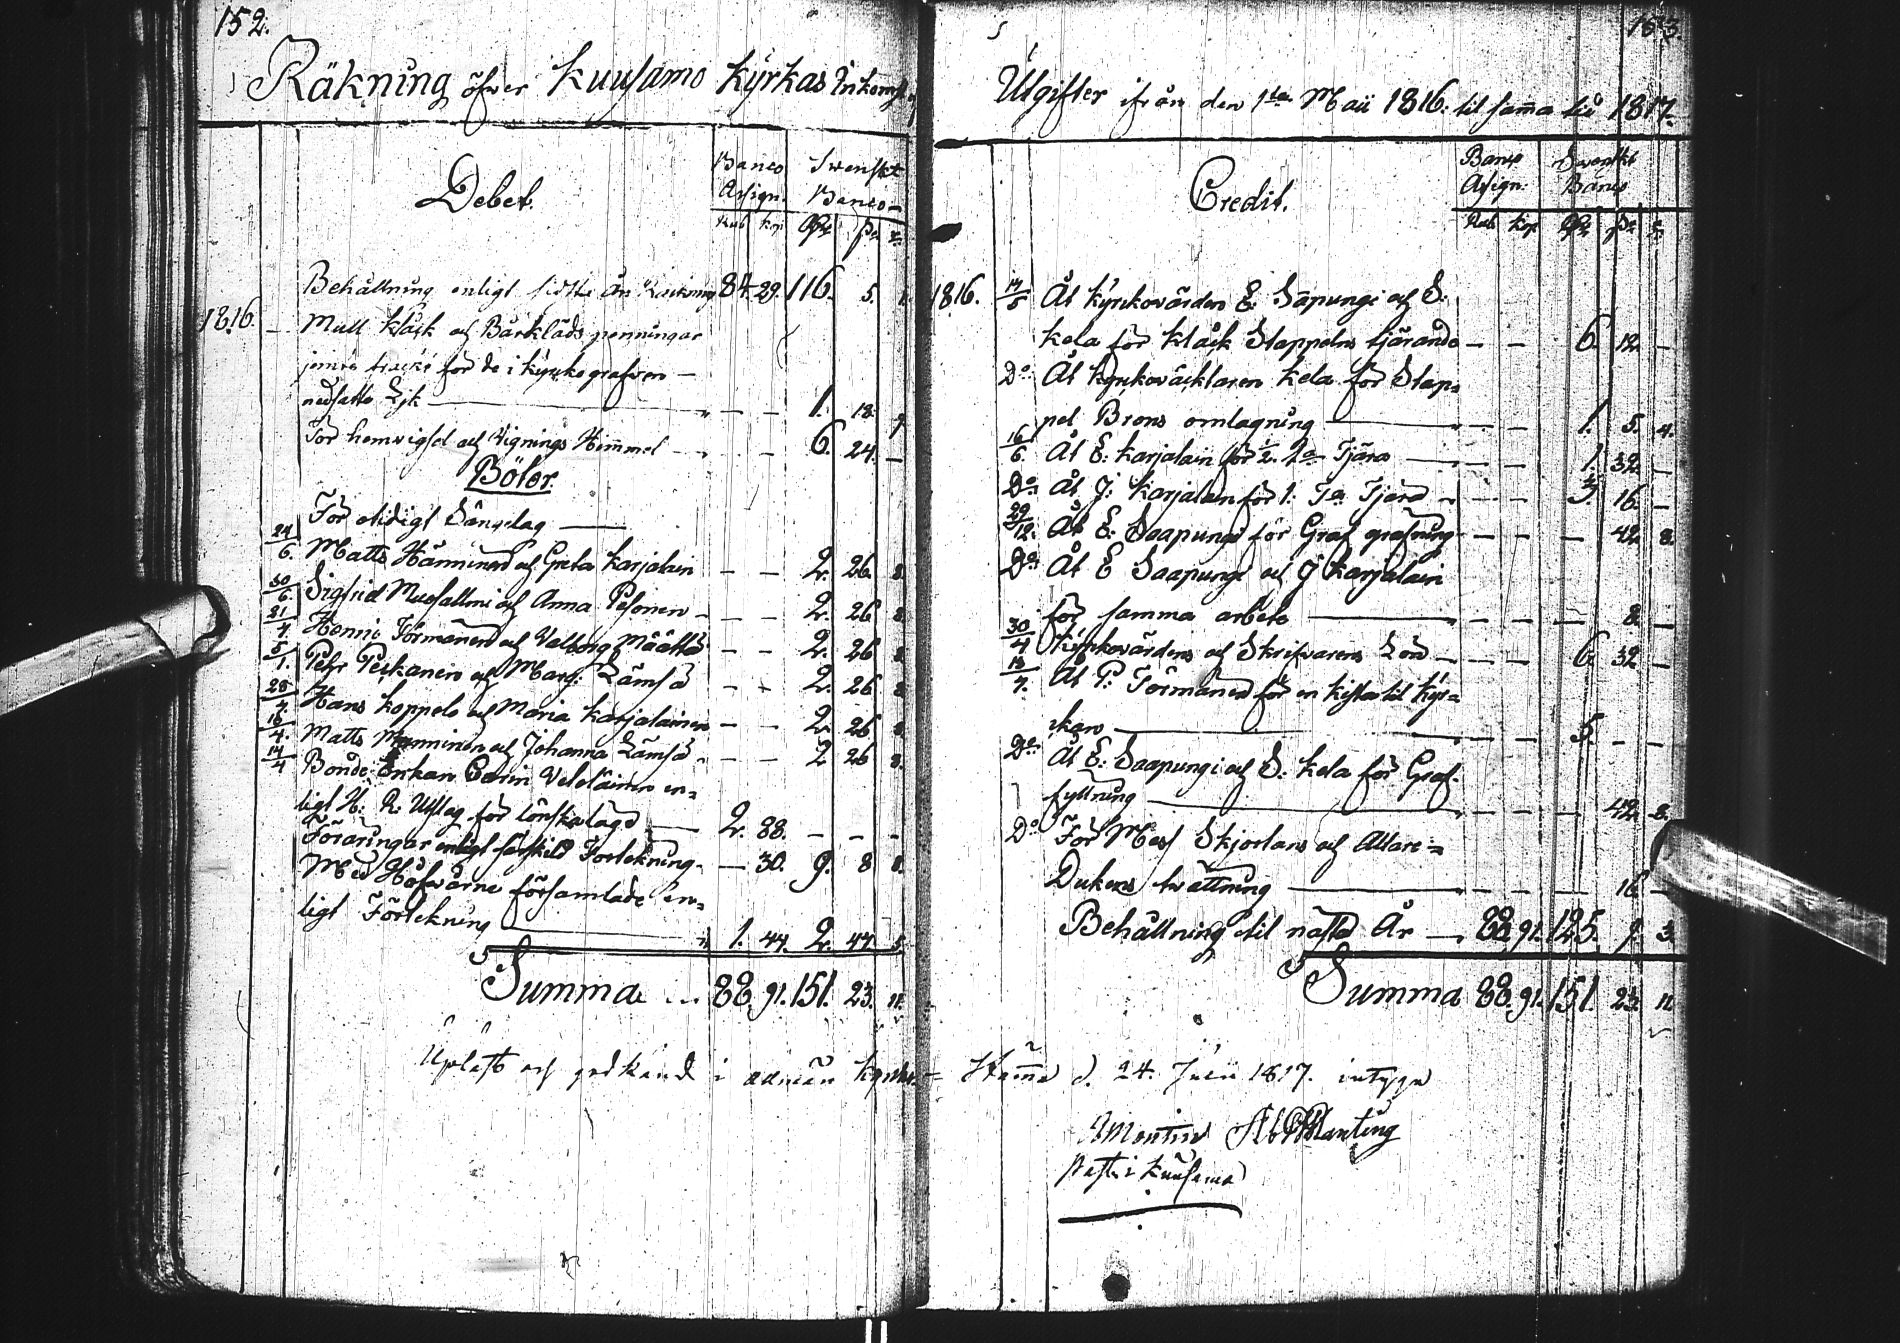 152.
Räkning öfver Kuusamo Kyrkas Inkomst
Debet.
Banco Assign.
Swenskt Banco
Rub kop Rdr
Behållning enligt sidsta års Räkning 84. 29. 116. 5. 1.
1816. – Mull Klåck och Bårkläds penningar
för de i Kyrkografven –
nedsatte Lik – – 1. 18. 9.
För hemvigsel och Vignings Himmel – – 6. 24. –
Böter.
För otidigt Sängelag
24/6. Matts Hänninen och Greta Karjalain – – 2. 26. 8.
30/6 Sigfrid Mursallmi och Anna Pesonen – – 2. 26 8
21/4. Henric Törmänen och Valborg Määttä – – 2. 26 8
5/1. Pehr Peskanen och Marg: Lämsä – – 2. 26 8
28/4 Hans Koppelo och Maria Karjalainen – – 2. 26 8.
16/4. Matts Manninen och Johanna Lämsä – – 2 26 8.
14/4 Bonde Enkan Carin Veteläinen en=
ligt H: R: Utslag för lönskaläge – 2. 88. – – –
Föräringar enligt särskild Förtekning – – 30. 9. 8 8.
Med Håfvarne församlade en=
ligt Förtekning – 1. 44. 2. 44 5
Summa 88. 91. 151. 23. 11.
Upläst och godkänd i allmän Kyrko=
153.
Utgifter ifrån den 1sta Maii 1816. til samma tid 1817.
Credit.
Banco Assign:
Swenskt Banco
Rub kop Rdr
1816. 14/5 Åt Kyrkovärden E: Säpungi och S:
Kela för Klåck Stappelns tjärande – – 6. 12. –
Do Åt Kyrkoväcktaren Kela för Stap=
pel Brons omlagning – – 1. 5. 4.
16/6 Åt E: Karjalain för 1/2 Ta Tjära – – 1. 32. –
Do Åt J: Karjalain för 1: Ta Tjära – – 3. 16. –
29/12. Åt E: Saapungi för Graf grafning – – – 42. 8.
Do Åt E Saapungi och J Karjalain
för samma arbete – – – 8. –
30/4 Kyrkovärdens och Skrifvarens Lön – – 6. 32 –
13/4. Åt P: Törmänen för en Kista til Kyr=
kan – 5. – –
Do Åt E: Saapungi och S: Kela för Graf=
fyllning – – – 42. 8.
Do För Mess Skjortans och Altare=
Dukens tvättning – – – 16 –
Behållning til nästa År – 88. 91. 125. 9. 3.
Summa 88. 91. 151. 23. 11
Stämma d. 24. Junii 1817. intyga
Ab Planting
Past: i Kuusamo